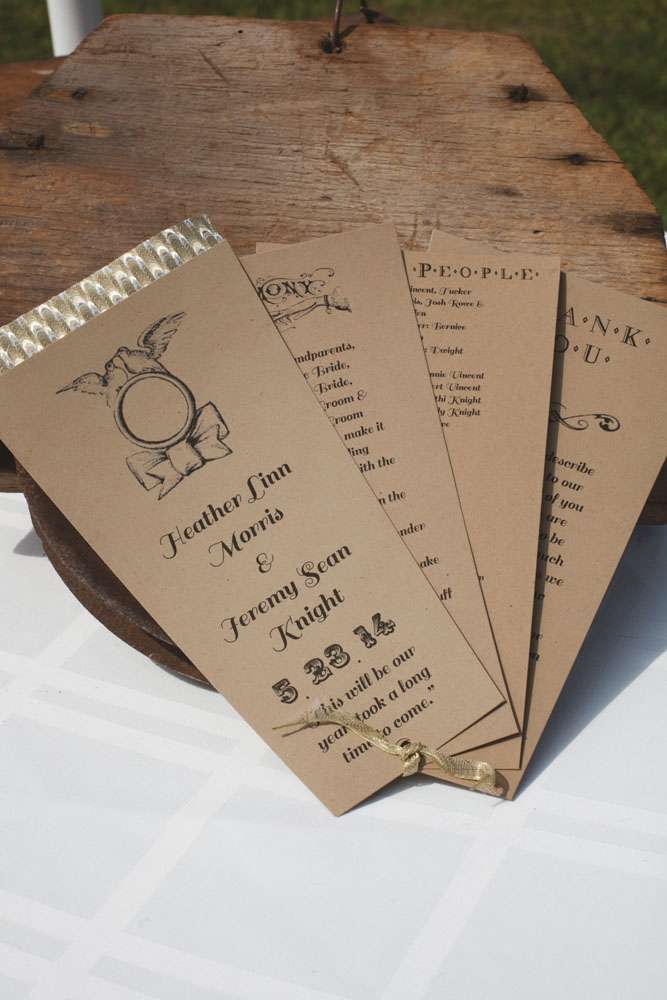 Heather Linn
Morris
&
Jeremy Sean
Knight
5.23.14
This will be our
year, took a long
time to come."
MONY
ndparents,
e Bride,
Bride,
room &
room
make it
ling
ith the
n the
nder
ake
uff
PEOPLE
incent, Tucker
is, Josh Rowe &
den
er: Bernice
Dwight
nnie Vincent
rt Vincent
thi Knight
dy Knight
ANK
OU
describe
to our
of you
are
o be
uch
we